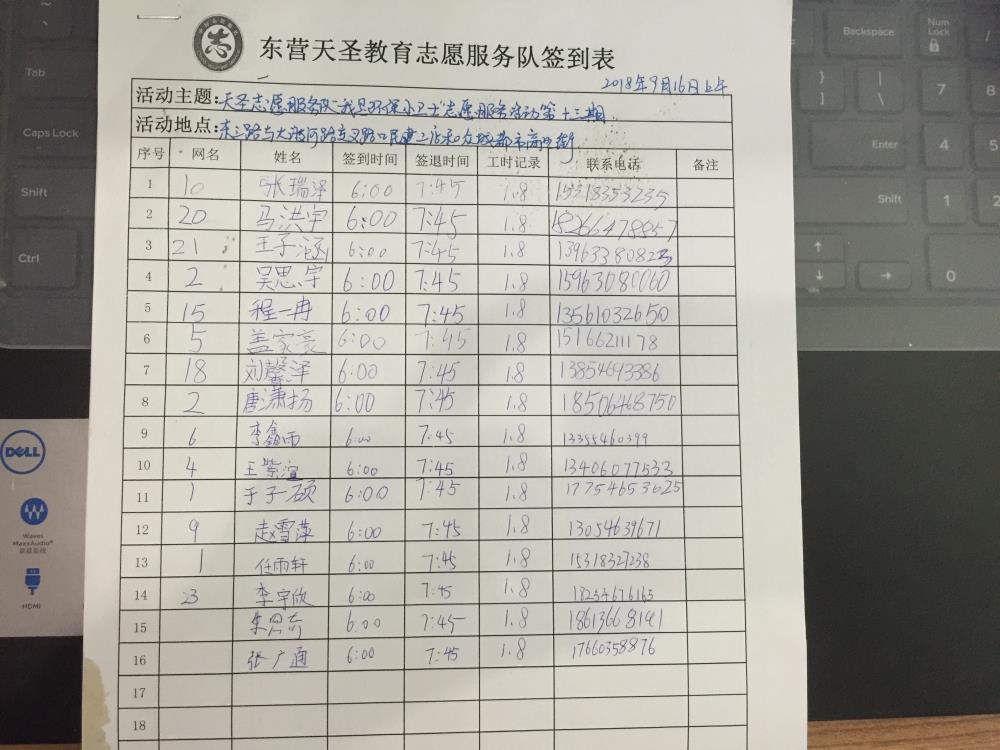 东营天圣教育志愿服务队签到表
2018年9月16日上午
活动主题:天圣志愿服务队"我是环保小卫士"志愿服务活动第十三期
活动地点:东二路与大渡河路交叉路口民建二店和众成都市商业街
序号 网名 姓名 签到时间 签退时间 工时记录 联系电话 备注
1 10 张瑞泽 6:00 7:45 1.8 15318353235
2 20 马洪宇 6:00 7:45 1.8 18266478857
3 21 王子涵 6:00 7:45 1.8 13963380823
4 2 吴思宇 6:00 7:45 1.8 15963080060
5 15 程一冉 6:00 7:45 1.8 13561032650
6 5 盖家豪 6:00 7:45 1.8 15166211178
7 18 刘馨泽 6:00 7:45 1.8 13854693386
8 2 唐潇扬 6:00 7:45 1.8 18506468750
9 6 李鑫雨 6:00 7:45 1.8 13355460399
10 4 王紫渲 6:00 7:45 1.8 13406077533
11 1 于子硕 6:00 7:45 1.8 17754653625
12 9 赵雪萍 6:00 7:45 1.8 13054639671
13 1 任雨轩 6:00 7:45 1.8 15318327238
14 23 李宇欣 6:00 7:45 1.8 18254676165
15 6:00 7:45 1.8 18613668191
16 张广通 6:00 7:45 1.8 17660358876
17
18
Tab
Caps Lock
Shift
Ctrl
Backspace
Num Lock
Enter
Shift
7
8
4
5
1
2
0
DELL
Waves
MaxxAudio
HDMI